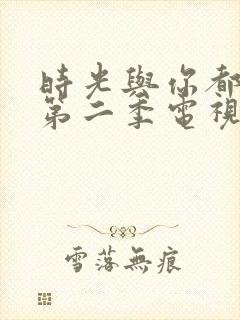 時光與你都
第二季電視
雪落無痕